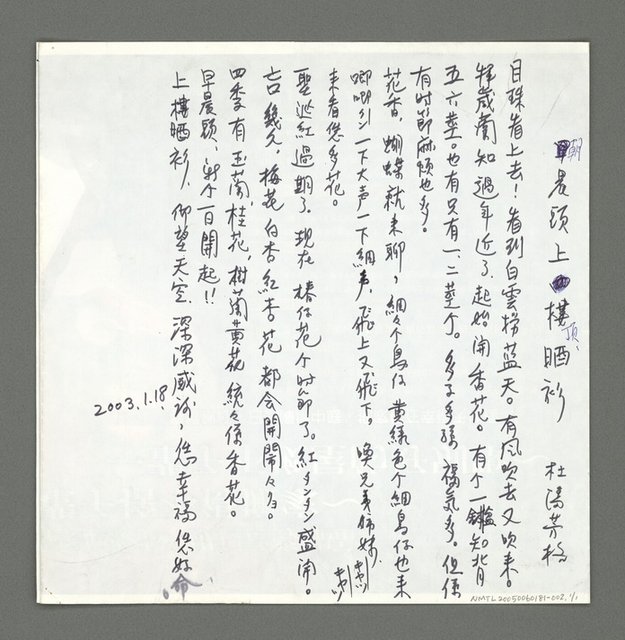 朝晨頭上樓頂晒衫 杜潘芳格
目珠看上去!看到白雲掃藍天。有風吹去又吹來。
報歲蘭知過年近了,起始開香花。有个一鑊知背
五六莖。也有只有一、二莖个。多子多孫 福氣多。但係
有時節麻煩也多。
花香,蝴蝶就來聊,細々个鳥仔 黃綠色个細鳥仔也來
唧唧引 一下大声一下細声,飛上又飛下。喚兄弟姊妹,
來看恁多花。
聖誕紅過期了。現在 椿仔花个時節了。紅 盛開。
幾久。梅花 白杏 紅李。花 都会開鬧々。
四季有玉蘭,桂花,樹蘭黃花 統々係香花。
早晨頭,新个一日開起!!
上樓晒衫,仰望天空,深深感謝,恁幸福 恁好命。
2003.1.18.
NMTL20050060181-002.1/1